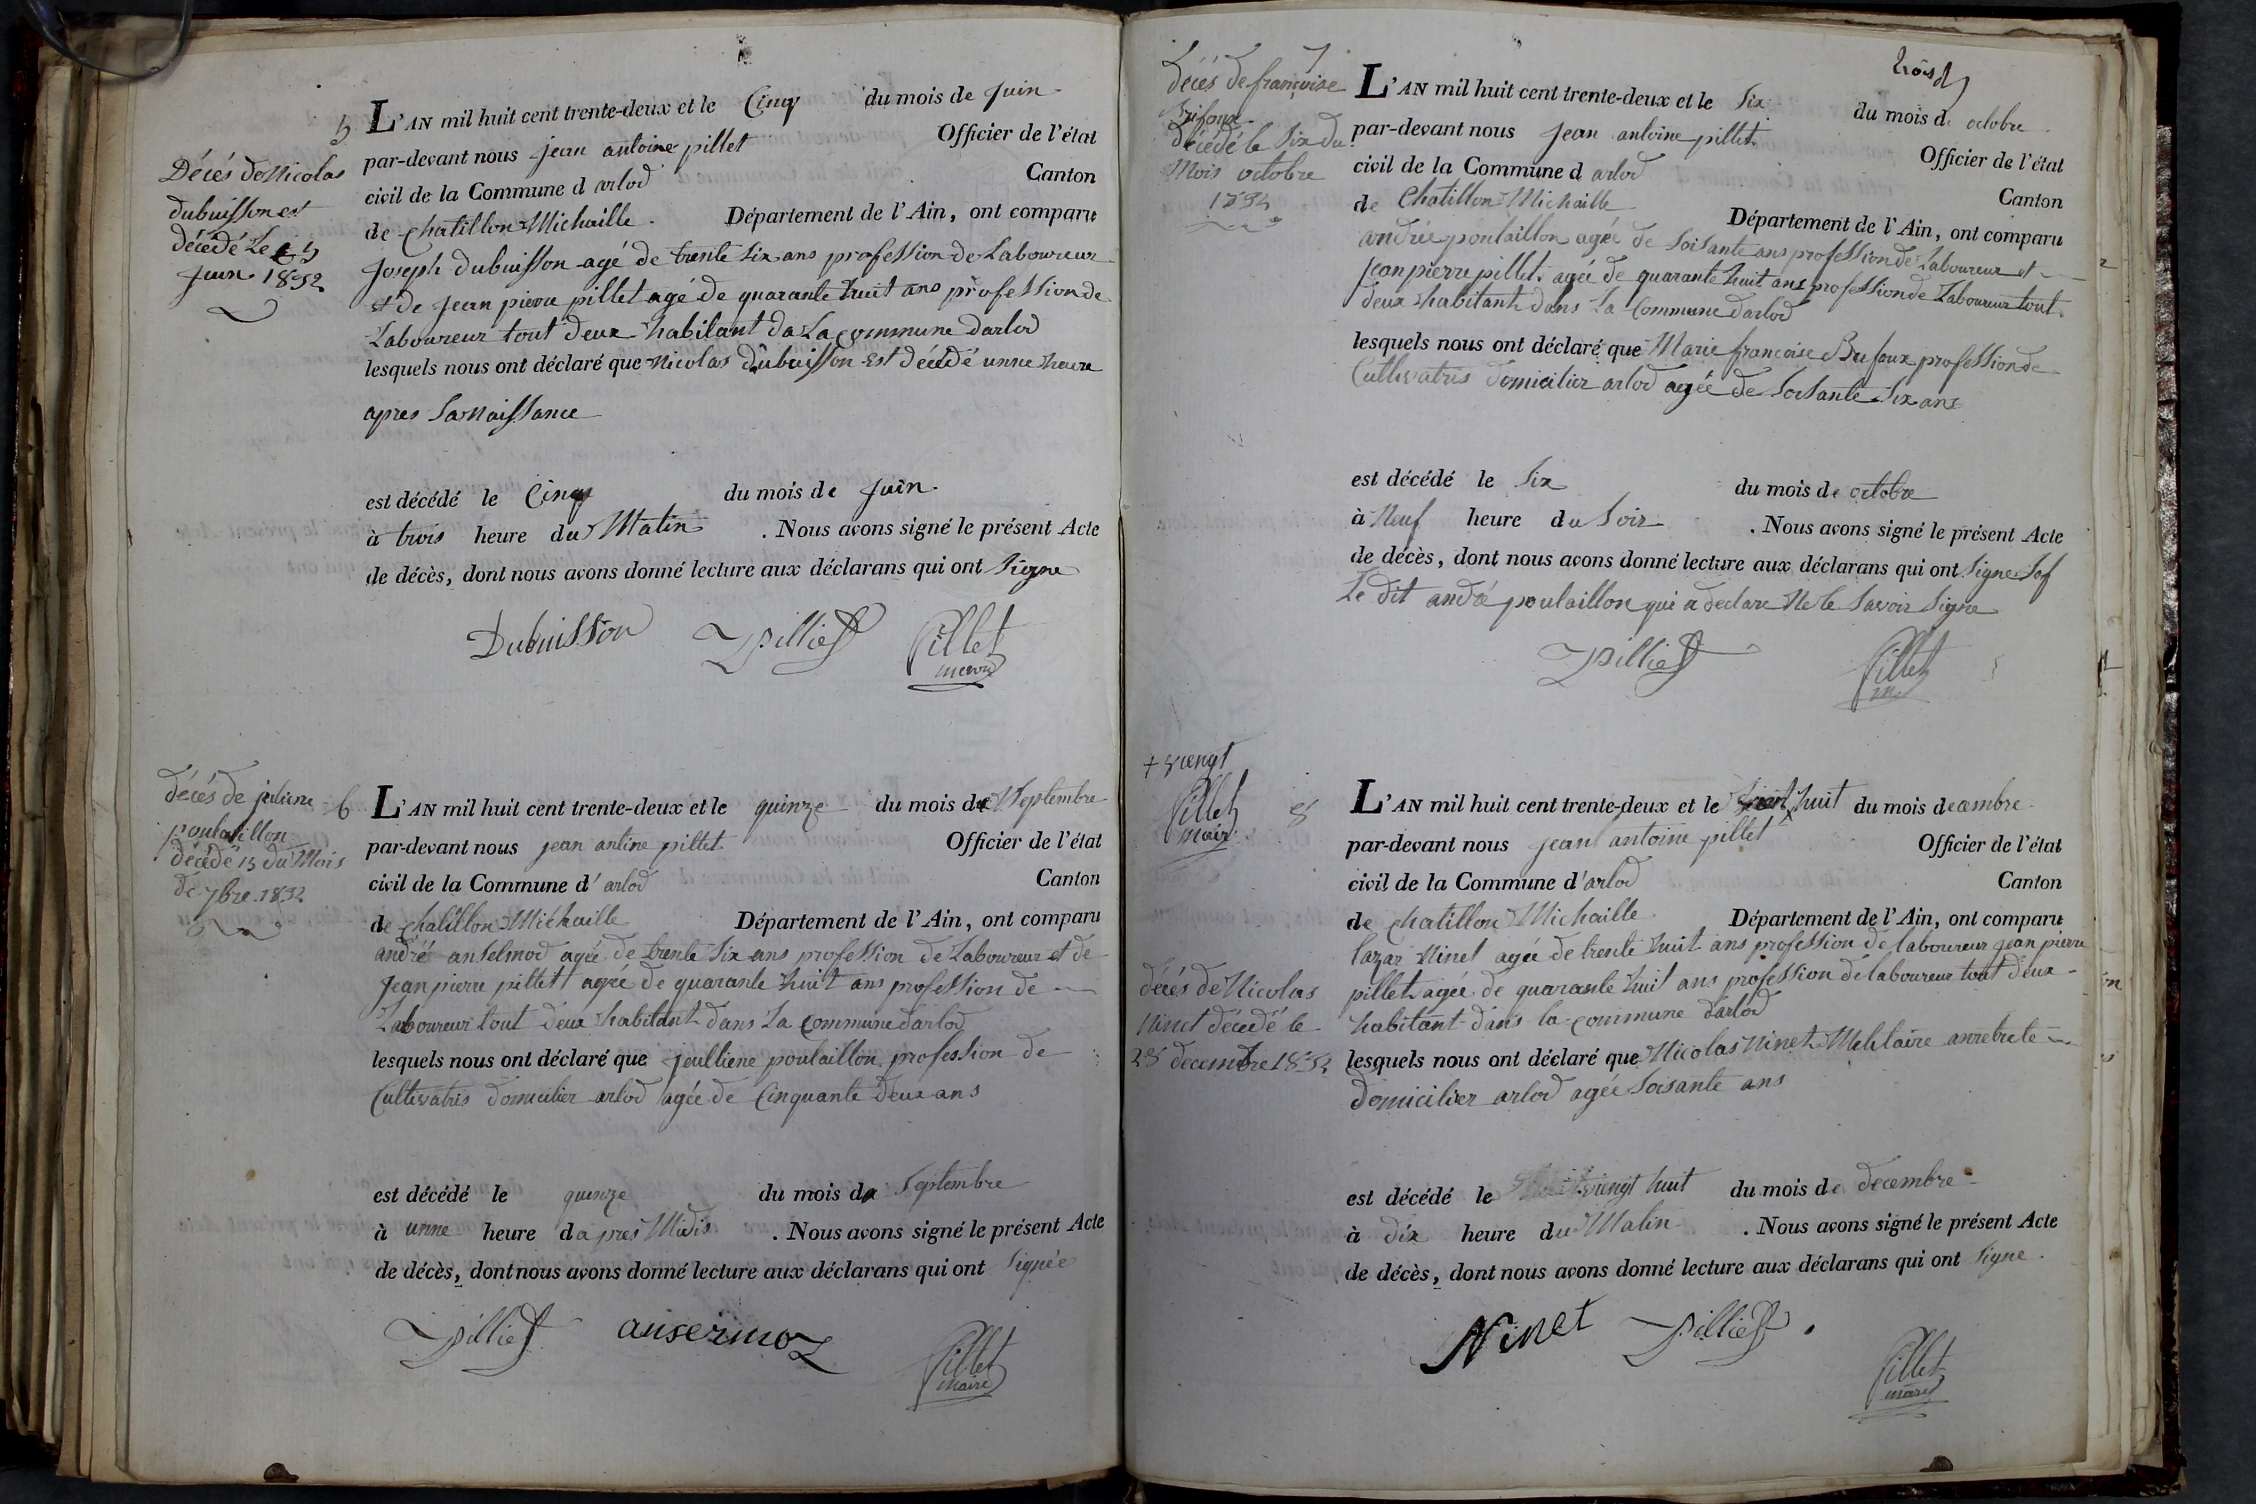 5
Décés de Nicolas
dubuisson est
décédé Le 5
juin 1832
L'AN mil huit cent trente-deux et le Cinq du mois de juin
par-devant nous jean antoine pillet Officier de l'état
civil de la Commune d arlod Canton
de chatillon Michaille. Département de l'Ain, ont comparu
joseph dubuisson agé de trente six ans profession de Laboureur
et de jean pierre pillet agé de quarante huit ans profession de
Laboureur tout deux habitant da La commune darlod
lesquels nous ont déclaré que Nicolas dubuisson est décédé unne heure
apres sa Naissance
est décédé le Cinq du mois de juin.
à trois heure du Matin. Nous avons signé le présent Acte
de décès, dont nous avons donné lecture aux déclarans qui ont signe
Dubuisson Pilliet Pillet
décés de juliene
poulaillon
décédé 15 du Mois
de 7bre 1832
6
L'AN mil huit cent trente-deux et le quinze du mois de Septembre
par-devant nous jean antine pillet Officier de l'état
civil de la Commune d'arlod Canton
de chatillon Michaille Département de l'Ain, ont comparu
andré anselmod agée de trente six ans profession de Laboureur et de
jean pierre pillet agée de quarante huit ans profession de
Laboureur tout deux habitant dans La commune darlod
lesquels nous ont déclaré que joulliene poulaillon profession de
Cultivatris domicilier arlod agée de Cinquante deux ans
est décédé le quinze du mois de Septembre
à unne heure dapres Midis. Nous avons signé le présent Acte
de décès, dont nous avons donné lecture aux déclarans qui ont signée
Pilliet ansermoz Pillet
maire
7
décés de françoise
décédé le six du
Mois octobre
1832
L'AN mil huit cent trente-deux et le six du mois de octobre
par-devant nous jean antoine pillet Officier de l'état
civil de la Commune d arlod Canton
de Chatillon Michaille Département de l'Ain, ont comparu
andrée poulaillon agée de soisante ans profession de Laboureur et
jean pierre pillet agée de quarante huit ans profession de Laboureur tout
deux habitant dans La Commune darlod
lesquels nous ont déclaré que Marie françoise Bufoux profession de
Cultivatris domicilier arlod agée de soisante six ans
est décédé le six du mois de octobre
à Neuf heure du soir. Nous avons signé le présent Acte
de décès, dont nous avons donné lecture aux déclarans qui ont signe sof
Le dit andré poulaillon qui a declare Ne le savoir signe
Pilliet Pillet
m
+ viengt
Pillet
maire
8
décés de Nicolas
Ninet décédé le
28 decembre 1832
L'AN mil huit cent trente-deux et le huit du mois decembre
par-devant nous jean antoine pillet Officier de l'état
civil de la Commune d'arlod Canton
de chatillon Michaille. Département de l'Ain, ont comparu
lazar Ninet agée de trente huit ans profession de laboureur jean pierre
pillet agée de quarante huit ans profession de laboureur tout deux
habitant dans la commune darlod
lesquels nous ont déclaré que Nicolas Ninet Militaire anretrete
domicilier arlod agée soisante ans
est décédé le viengt huit du mois de decembre
à dix heure du Matin. Nous avons signé le présent Acte
de décès, dont nous avons donné lecture aux déclarans qui ont signe.
Ninet Pilliet Pillet
maire